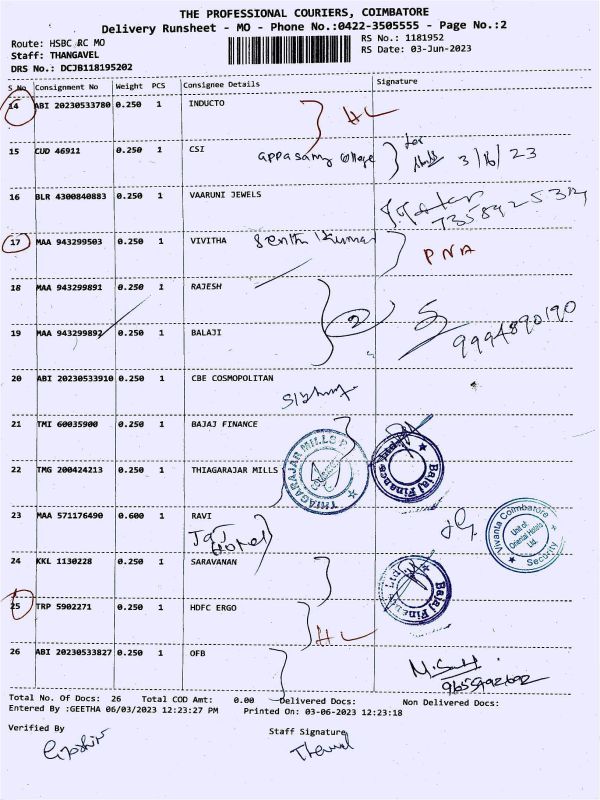 THE PROFESSIONAL COURIERS, COIMBATORE
Delivery Runsheet - MO - Phone No.:0422-3505555 - Page No.:2
Route: HSBC RC MO
RS No.: 1181952
Staff: THANGAVEL
RS Date: 03-Jun-2023
DRS No.: DCJB118195202
S No Consignment No Weight PCS Consignee Details Signature
14 ABI 20230533780 0.250 1 INDUCTO
HL
15 CUD 46911 0.250 1 CSI
appasamy college 3/6/23
16 BLR 4300840883 0.250 1 VAARUNI JEWELS
17 MAA 943299503 0.250 1 VIVITHA Senthil kumar
PNA
18 MAA 943299891 0.250 1 RAJESH
2
9994890190
19 MAA 943299892 0.250 1 BALAJI
20 ABI 20230533910 0.250 1 CBE COSMOPOLITAN
21 TMI 60035900 0.250 1 BAJAJ FINANCE
Bajaj Finance Ltd
22 TMG 200424213 0.250 1 THIAGARAJAR MILLS
THIAGARAJAR MILLS P
23 MAA 571176490 0.600 1 RAVI
Hotel
Vivanta Coimbatore
Unit of
Oriental Hotels
Ltd.
Security
24 KKL 1130228 0.250 1 SARAVANAN
Bajaj Finance Ltd
25 TRP 5902271 0.250 1 HDFC ERGO
HL
26 ABI 20230533827 0.250 1 OFB
Total No. Of Docs: 26 Total COD Amt: 0.00 Delivered Docs: Non Delivered Docs:
Entered By :GEETHA 06/03/2023 12:23:27 PM Printed On: 03-06-2023 12:23:18
Verified By
Staff Signature